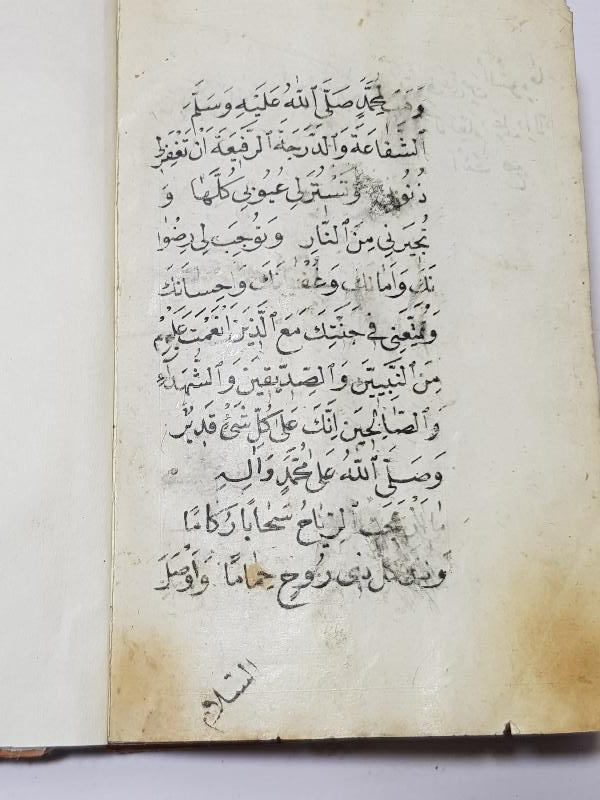 وَهَبْ لِمُحَمَّدٍ صَلَّى ٱللّٰهُ عَلَيْهِ وَسَلَّمَ
ٱلشَّفَاعَةَ وَٱلدَّرَجَةَ ٱلرَّفِيعَةَ أَنْ تَغْفِرَ لِي
ذُنُوبِي وَتَسْتُرَ لِي عُيُوبِي كُلَّهَا وَ
تُجِيرَنِي مِنَ ٱلنَّارِ وَتُوجِبَ لِي رِضْوَا
نَكَ وَاَمَانَكَ وَغُفْرَانَكَ وَاِحْسَانَكَ
وَتُمَتِّعَنِي فِي جَنَّتِكَ مَعَ ٱلَّذِينَ اَنْعَمْتَ عَلَيْهِمْ
مِنَ ٱلنَّبِيِّينَ وَٱلصِّدِّيقِينَ وَٱلشُّهَدَآءِ
وَٱلصَّالِحِينَ اِنَّكَ عَلَى كُلِّ شَيْءٍ قَدِيرٌ
وَصَلَّى ٱللّٰهُ عَلَى مُحَمَّدٍ وَاٰلِهِ
ٱلرِّيَاحُ سَحَابًا رُكَامًا
كُلُّ ذِي رُوحٍ حِمَامًا وَاَوْصِلَ
السَّلَامَ